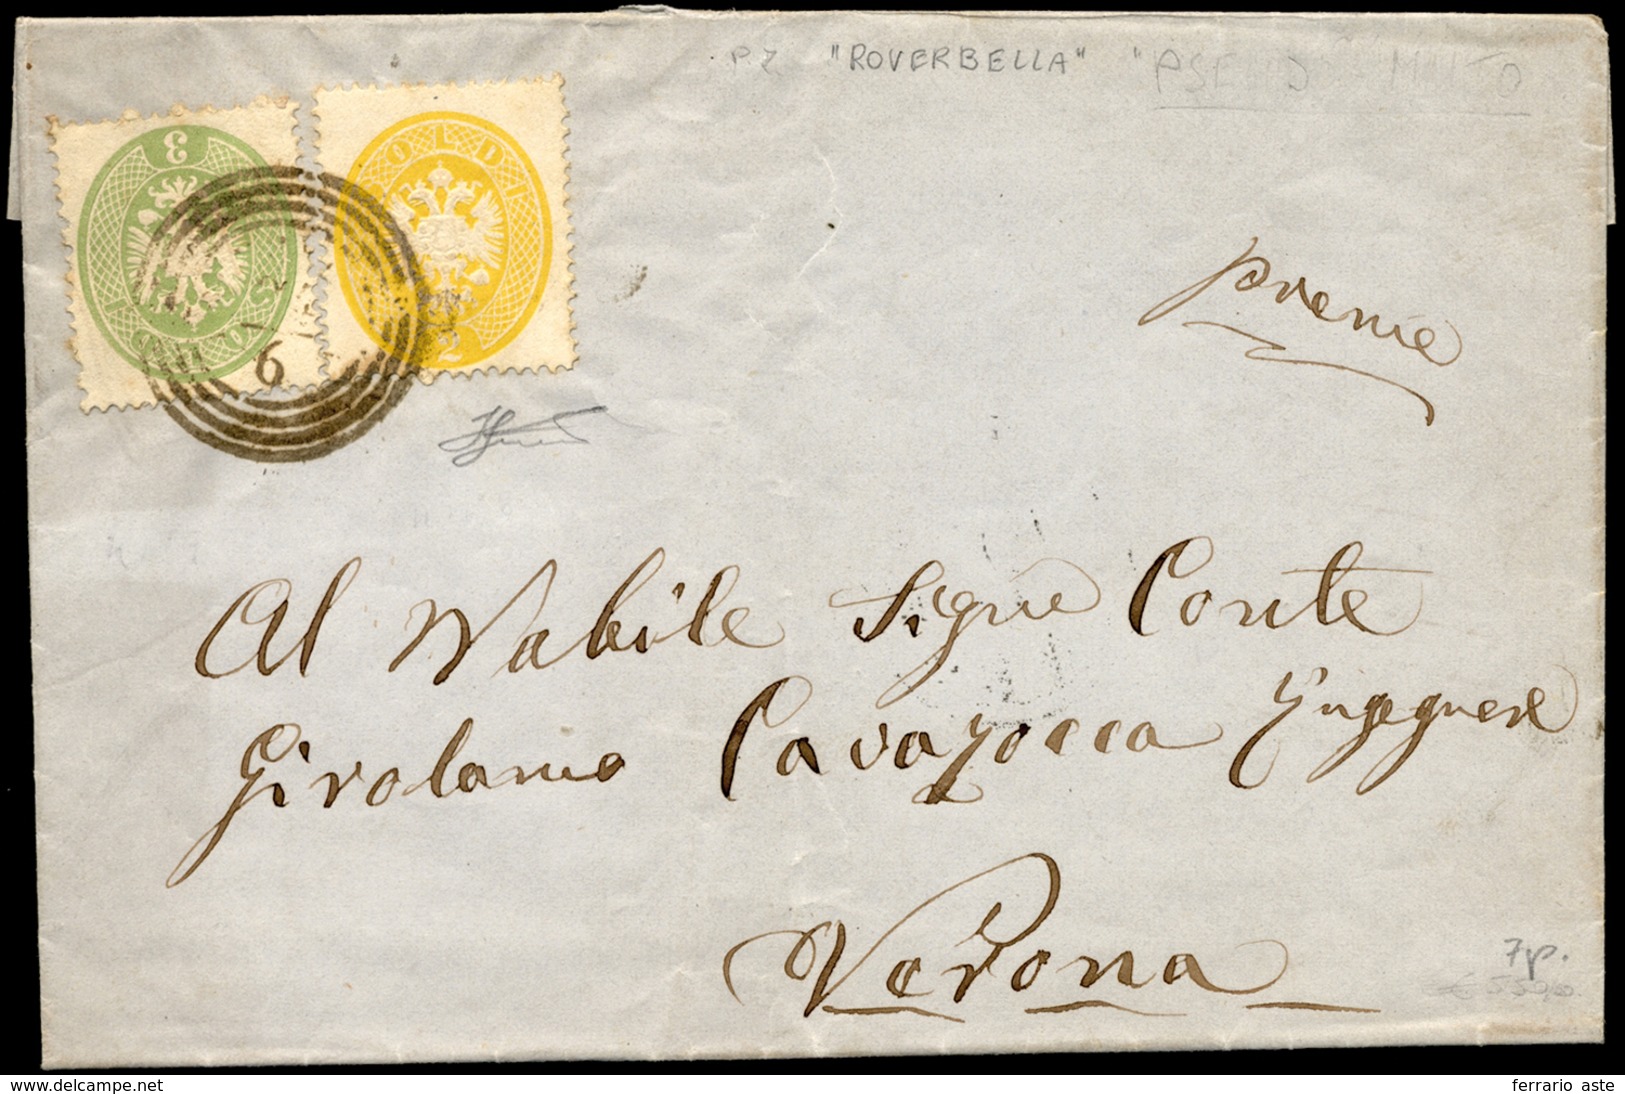 "ROVERBELLA"
3
SOLDI
SOLDI
2
6
preme
Al Nobile Sigre Conte
Girolamo Cavazocca Ingegnere
Verona
7p.
delcampe.net
ferrario aste